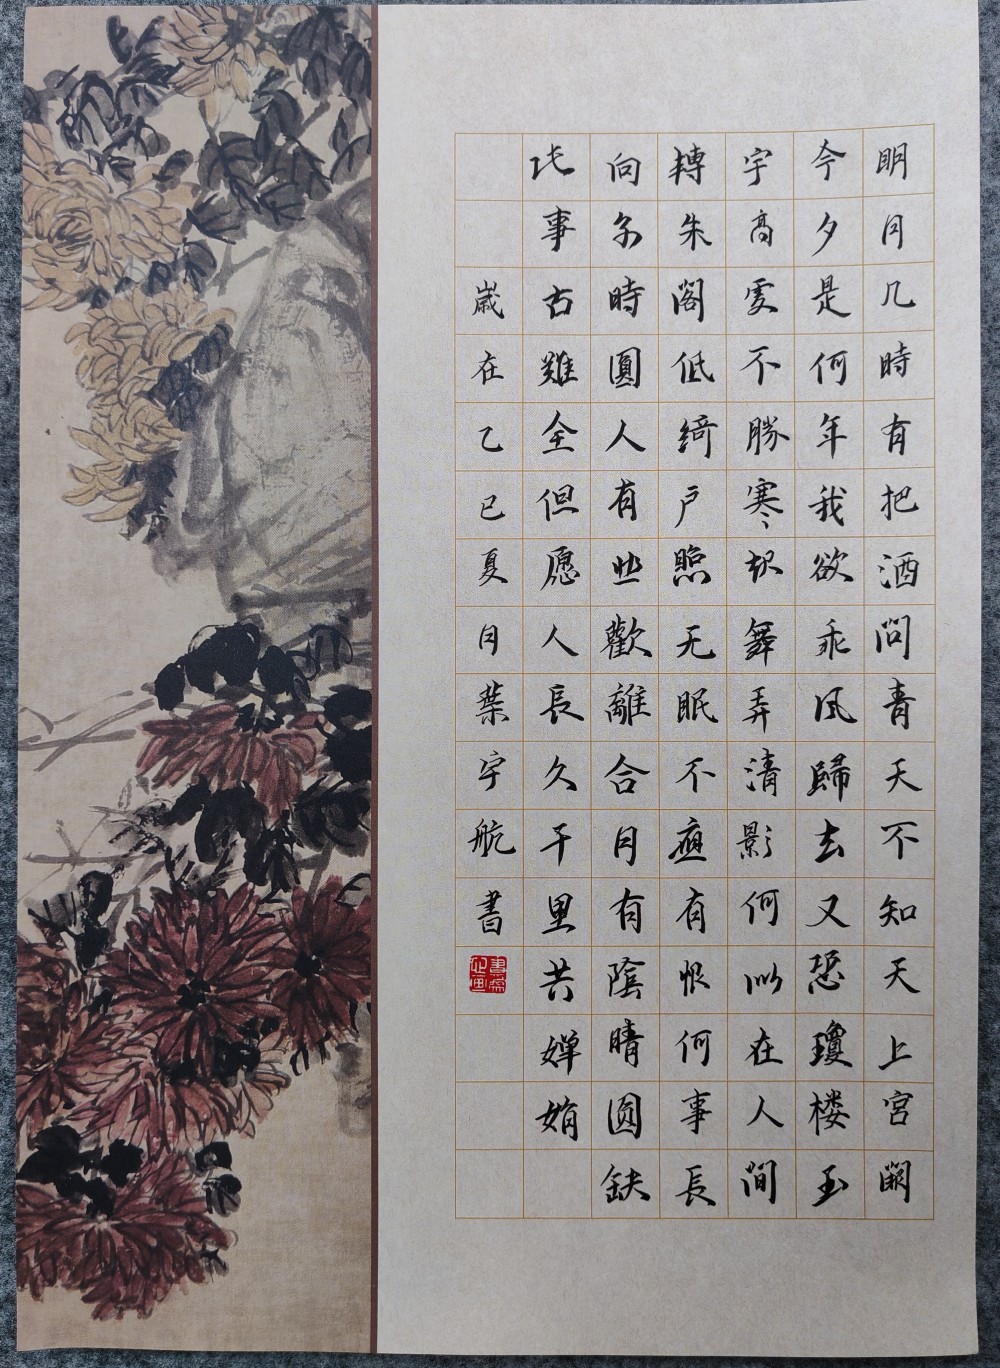 明月几時有把酒問青天不知天上宮闕
今夕是何年我欲乘風歸去又恐瓊楼玉
宇高處不勝寒起舞弄清影何似在人間
轉朱閣低綺户照无眠不應有恨何事長
向别時圓人有悲歡離合月有陰晴圆缺
此事古難全但愿人長久千里共嬋娟
嵗在乙巳夏月葉宇航書
書為心画